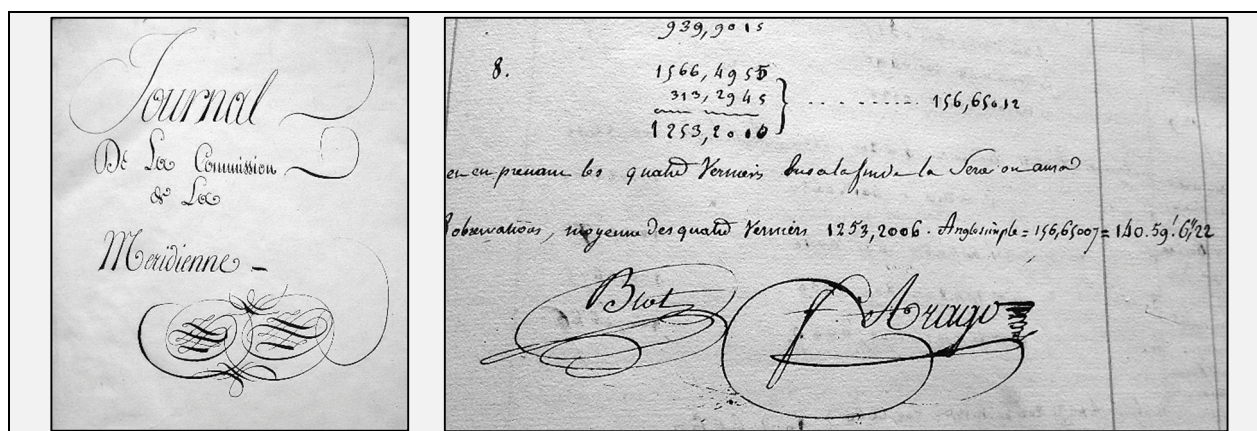 Journal
De La Commission
de La
Meridienne -
939,9015
8.
1566,4955
313,2945
1253,2010
.......... 156,65012
en en prenant les quatre Verniers lus a la fin de la Serie on aura
observations, moyenne des quatre Verniers 1253,2006. Angle simple = 156,65007 = 140.59'.6",22
Biot
F Arago